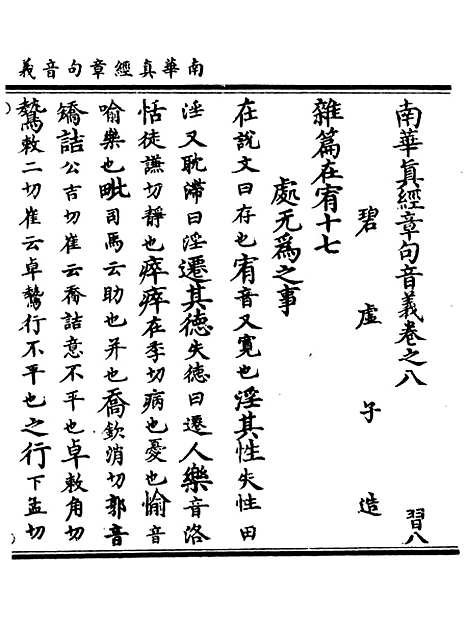 南華真經章句音義
南華真經章句音義卷之八 習八
碧虛子造
雜篇在宥十七
處无爲之事
在說文曰存也宥音又寬也淫其性失性田
淫又耽滯曰淫遷其德失德曰遷人樂音洛
恬徒謙切靜也瘁瘁在季切病也憂也愉音
喻樂也毗司馬云助也并也喬欽消切郭音
矯詰公吉切崔云喬詰意不平也卓敕角切
鷙敕二切崔云卓鷙行不平也之行下孟切